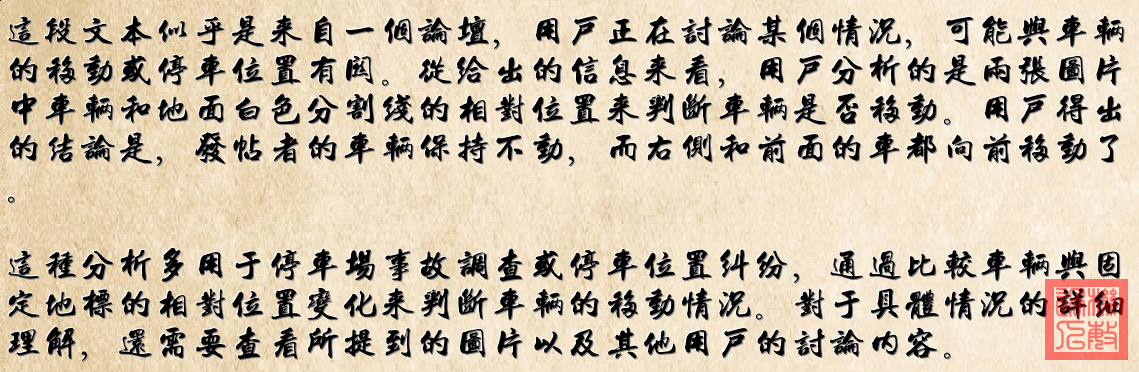 這段文本似乎是來自一個論壇，用戶正在討論某個情況，可能與車輛
的移動或停車位置有関。從給出的信息來看，用戶分析的是兩張圖片
中車輛和地面白色分割綫的相對位置來判斷車輛是否移動。用戶得出
的結論是，發帖者的車輛保持不動，而右側和前面的車都向前移動了
。
這種分析多用于停車場事故調查或停車位置糾紛，通過比較車輛與固
定地標的相對位置變化來判斷車輛的移動情況。對于具體情況的詳細
理解，還需要查看所提到的圖片以及其他用戶的討論内容。